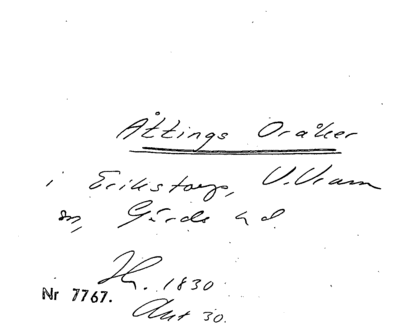 Åttings Oråker
i Erikstorp, V. Vram
sn, Gärds hd.
1830
Nr 7767.
Akt 30.